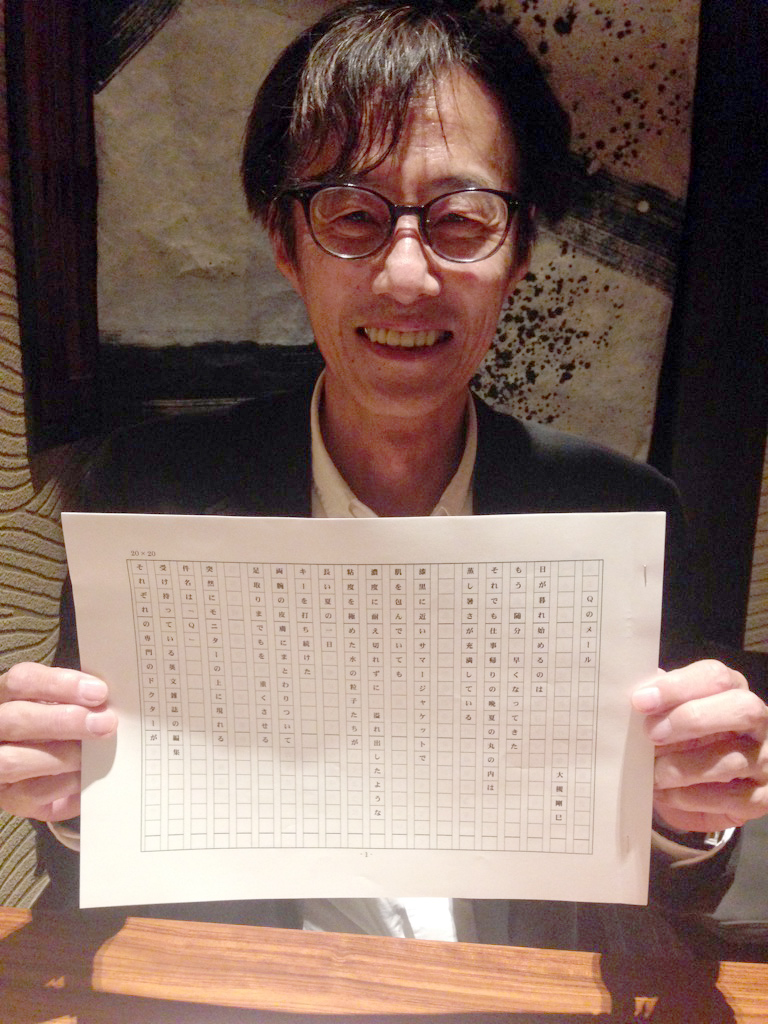 20×20
Qのメール
大橋剛巳
日が暮れ始めるのは
もう 随分 早くなってきた
それでも仕事帰りの晩夏の丸の内は
蒸し暑さが充満している
漆黒に近いサマージャケットで
肌を包んでいても
濃度に耐え切れずに 溢れ出したような
粘度を極めた水の粒子たちが
長い夏の一日
キーを打ち続けた
両腕の皮膚にまとわりついて
足取りまでもを 重くさせる
突然にモニターの上に現れる
件名は〜Q〜
受け持っている英文雑誌の編集
それぞれの専門のドクターが
-1-